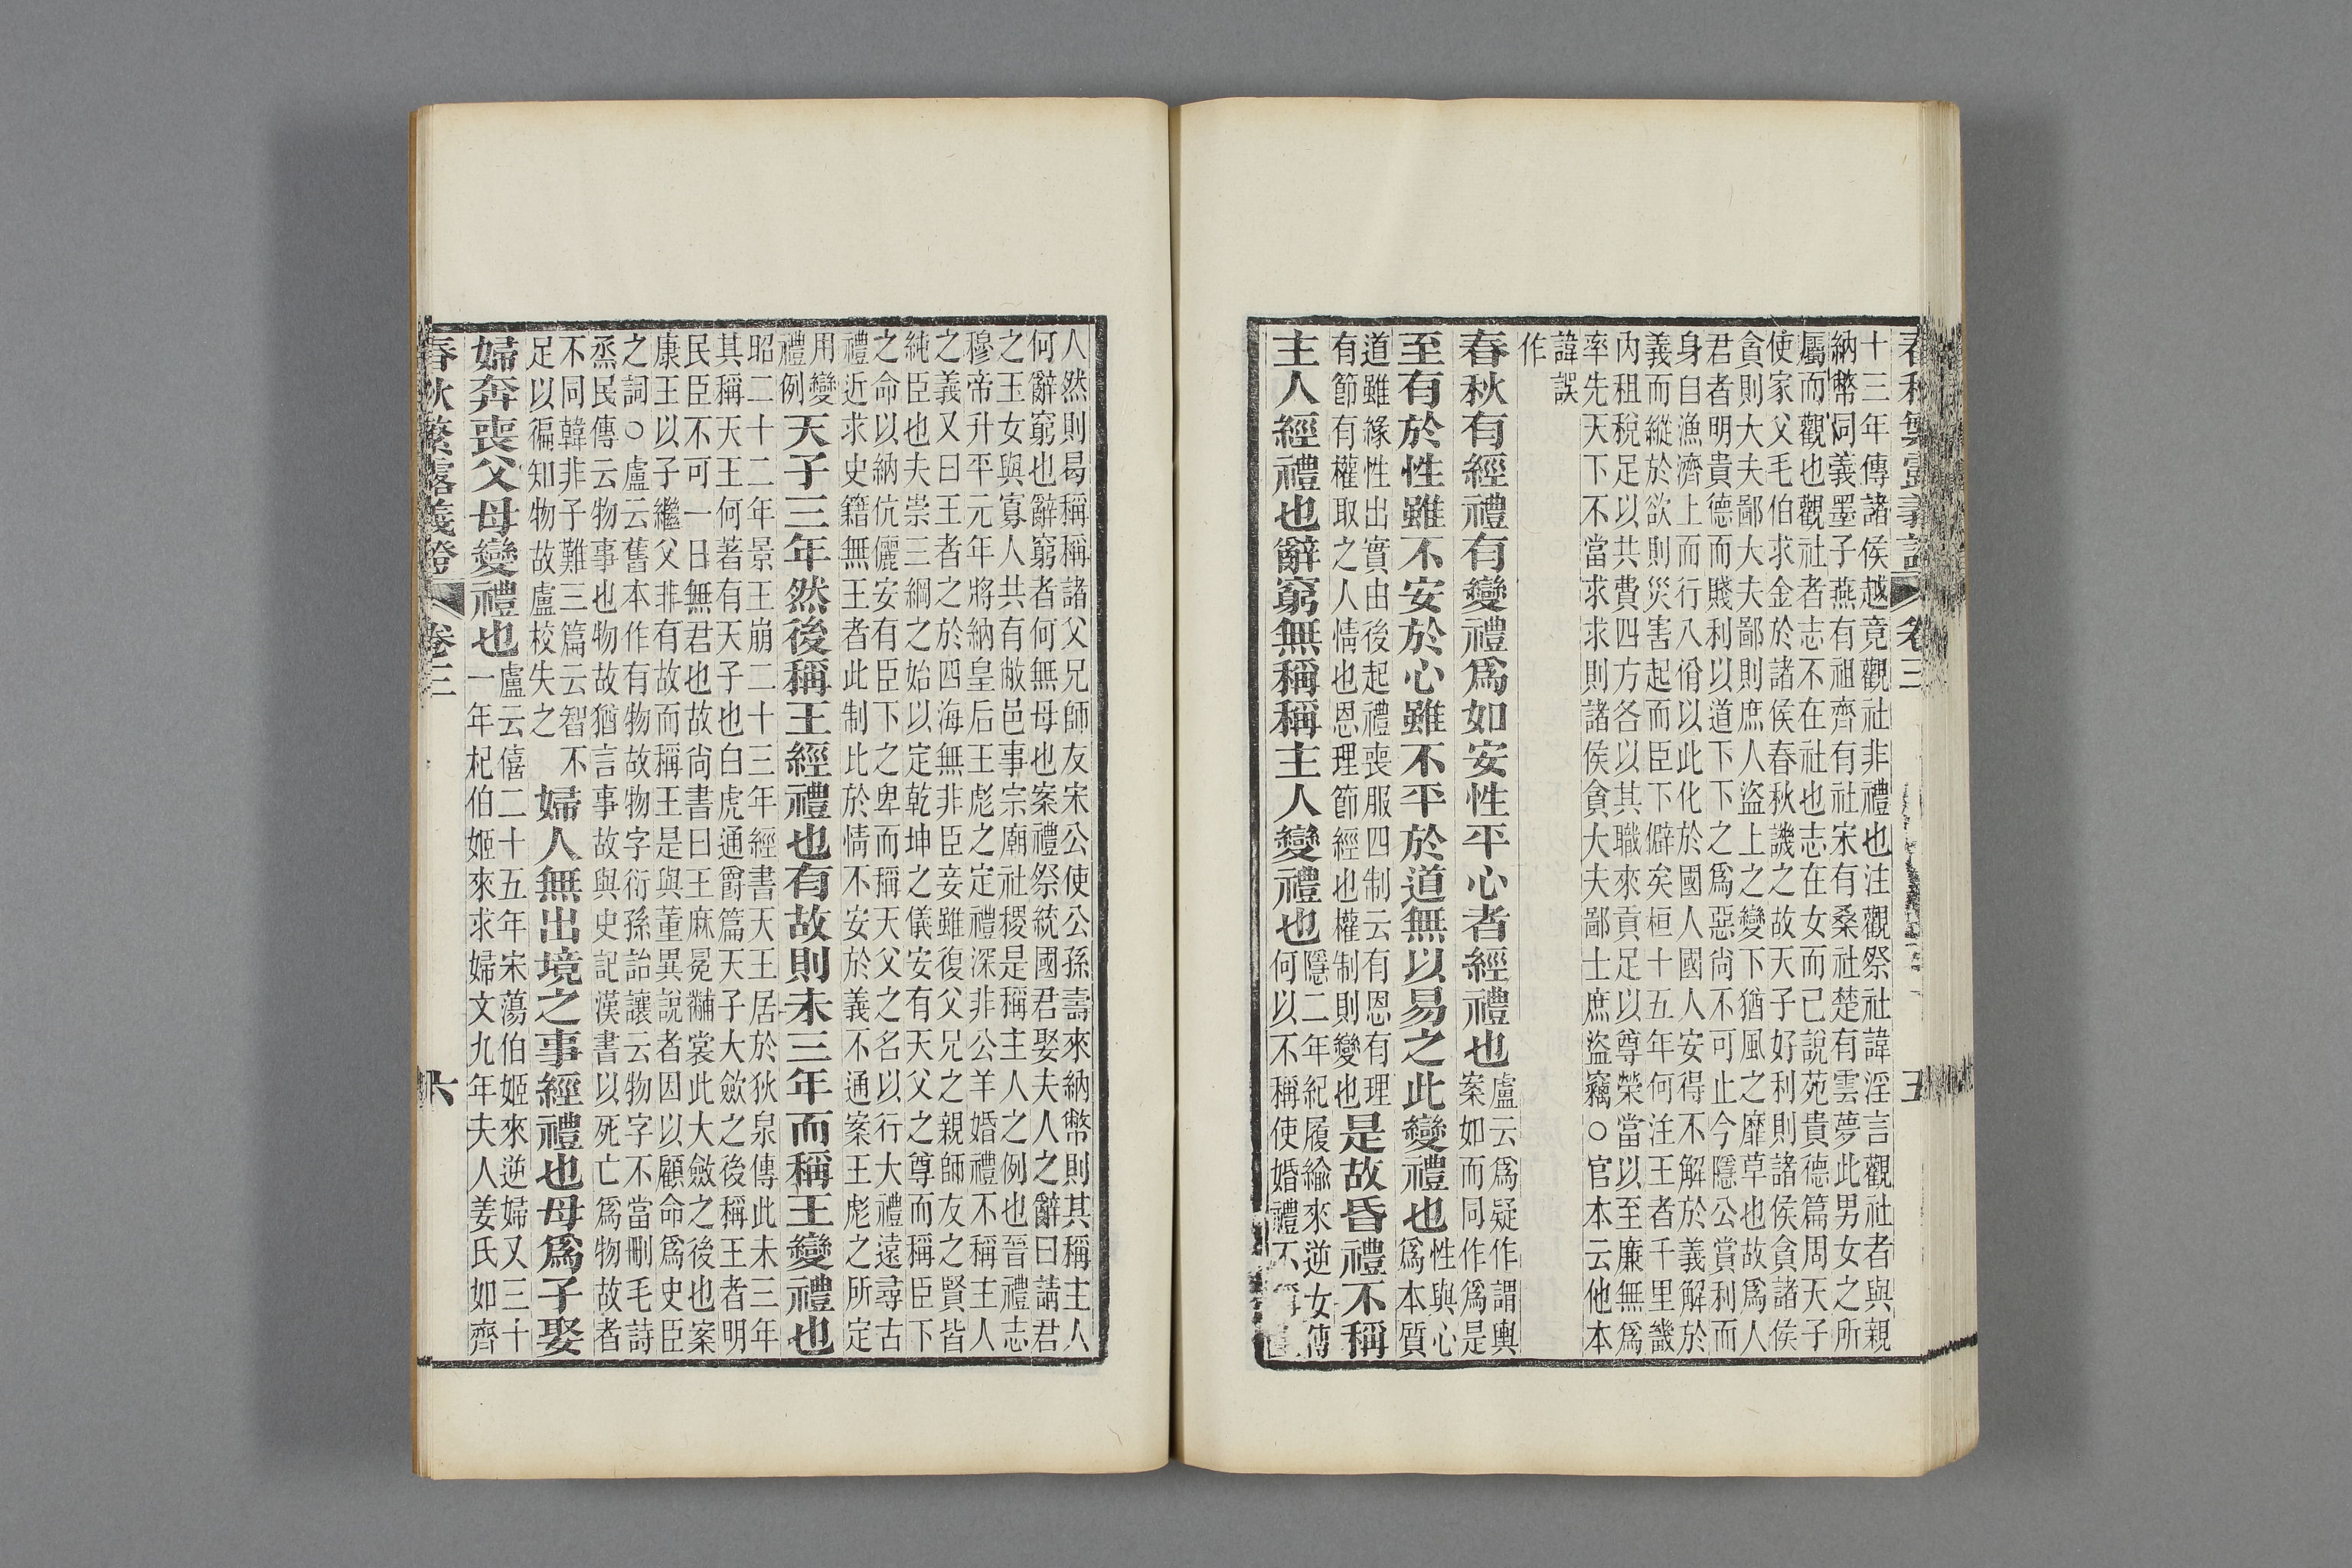 春秋繁露義證 卷三 五
十三年傳諸侯越竟觀社非禮也注觀祭社諱淫言觀社者與親
納幣同義墨子燕有祖齊有社宋有桑社楚有雲夢此男女之所
屬而觀也觀社者志不在社也志在女而已說苑貴德篇周天子
使家父毛伯求金於諸侯春秋譏之故天子好利則諸侯貪諸侯
貪則大夫鄙大夫鄙則庶人盜上之變下猶風之靡草也故爲人
君者明貴德而賤利以道下下之爲惡尚不可止今隱公賞利而
身自漁濟上而行八佾以此化於國人國人安得不解於義解於
義而縱於欲則災害起而臣下僻矣桓十五年何注王者千里畿
內租稅足以共費四方各以其職來貢足以尊榮當以至廉無爲
率先天下不當求求則諸侯貪大夫鄙士庶盜竊○官本云他本
諱誤
作
春秋有經禮有變禮爲如安性平心者經禮也
盧云爲疑作謂輿
案如而同作爲是
至有於性雖不安於心雖不平於道無以易之此變禮也
性與心
爲本質
道雖緣性出實由後起禮喪服四制云有恩有理
有節有權取之人情也恩理節經也權制則變也
是故昏禮不稱
主人經禮也辭窮無稱稱主人變禮也
隱二年紀履緰來逆女傳
何以不稱使婚禮不稱主
人然則曷稱稱諸父兄師友宋公使公孫壽來納幣則其稱主人
何辭窮也辭窮者何無母也案禮祭統國君娶夫人之辭曰請君
之玉女與寡人共有敝邑事宗廟社稷是稱主人之例也晉禮志
穆帝升平元年將納皇后王彪之定禮深非公羊婚禮不稱主人
之義又曰王者之於四海無非臣妾雖復父兄之親師友之賢皆
純臣也夫崇三綱之始以定乾坤之儀安有天父之尊而稱臣下
之命以納伉儷安有臣下之卑而稱天父之名以行大禮遠尋古
禮近求史籍無王者此制此於情不安於義不通案王彪之所定
用變
禮例
天子三年然後稱王經禮也有故則未三年而稱王變禮也
昭二十二年景王崩二十三年經書天王居於狄泉傳此未三年
其稱天王何著有天子也白虎通爵篇天子大斂之後稱王者明
民臣不可一日無君也故尚書曰王麻冕黼裳此大斂之後也案
康王以子繼父非有故而稱王是與董異說者因以顧命爲史臣
之詞○盧云舊本作有物故物字衍孫詒讓云物字不當刪毛詩
烝民傳云物事也物故猶言事故與史記漢書以死亡爲物故者
不同韓非子難三篇云智不
足以徧知物故盧校失之
婦人無出境之事經禮也母爲子娶
婦奔喪父母變禮也
盧云僖二十五年宋蕩伯姬來逆婦又三十
一年杞伯姬來求婦文九年夫人姜氏如齊
春秋繁露義證 卷三 六